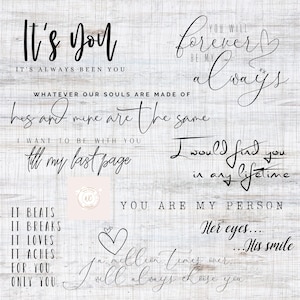 It's you
IT'S ALWAYS BEEN YOU
YOU WILL
forever
BE MY
always
WHATEVER OUR SOULS ARE MADE OF
his and mine are the same
I WANT TO BE WITH YOU
till my last page
I would find you
in any lifetime
YOU ARE MY PERSON
IT BEATS
IT BREAKS
IT LOVES
IT ACHES
FOR YOU
ONLY YOU
Her eyes...
...His smile
In a million times over...
I will always choose you